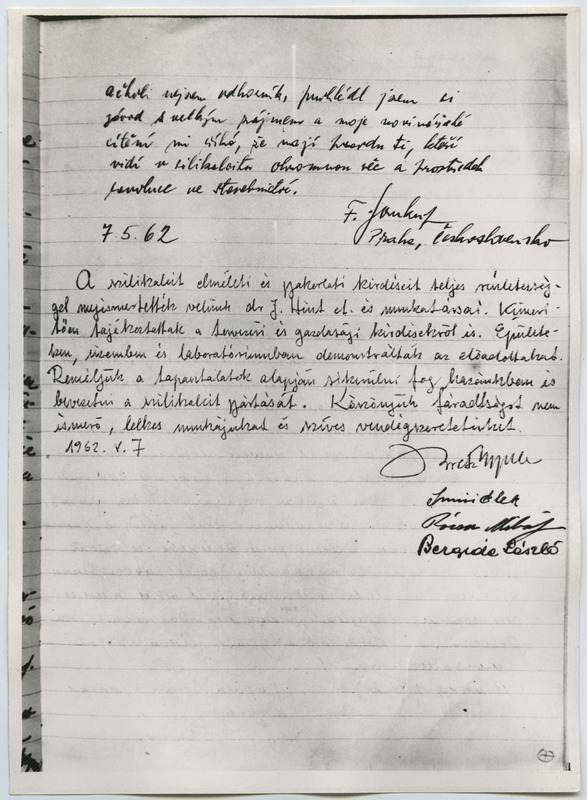 ačkoli nejsem odborník, prohlédl jsem si
závod s velkým zájmem a moje novinářské
cítění mi říká, že mají pravdu ti, kteří
vidí v silikalcitu ohromnou věc a prostředek
revoluce ve stavebnictví.
F.
7.5.62 Praha, Československo
A szilikalcit elméleti és gyakorlati kérdéseit teljes részletesség-
gel megismertették velünk dr J. Hint et. és munkatársai. Kimerí-
tően tájékoztattak a tervezési és gazdasági kérdésekről is. Épülete-
ken, üzemben és laboratóriumban demonstrálták az előadottakat.
Reméljük a tapasztalatok alapján sikerülni fog hazánkban is
bevezetni a szilikalcit gyártását. Köszönjük fáradtságot nem
ismerő, lelkes munkájukat és szíves vendégszeretetüket.
1962. V. 7
Rózsa Mihály
Bergida László